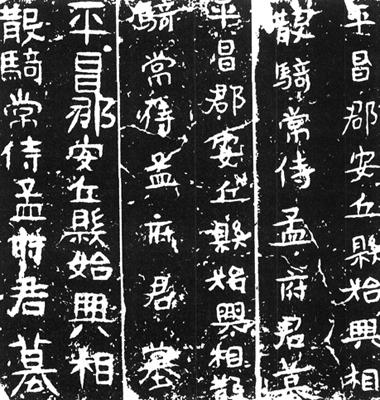 平昌郡安丘縣始興相
散騎常侍孟府君墓
平昌郡安丘縣始興相散
騎常侍孟府君墓
平昌郡安丘縣始興相
散騎常侍孟府君墓